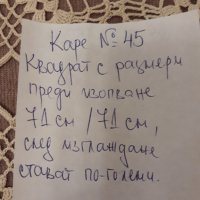 Каре № 45
Квадрат с размери
преди изопване
71 см / 71 см,
след изглаждане
стават по-големи.